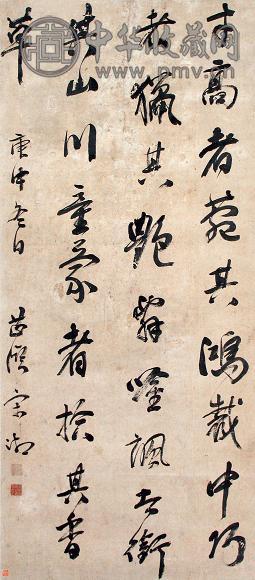 中华收藏网
才高者菀其鴻裁中巧
者獵其艷辭吟諷者銜
其山川童蒙者拾其香
草
庚申冬日